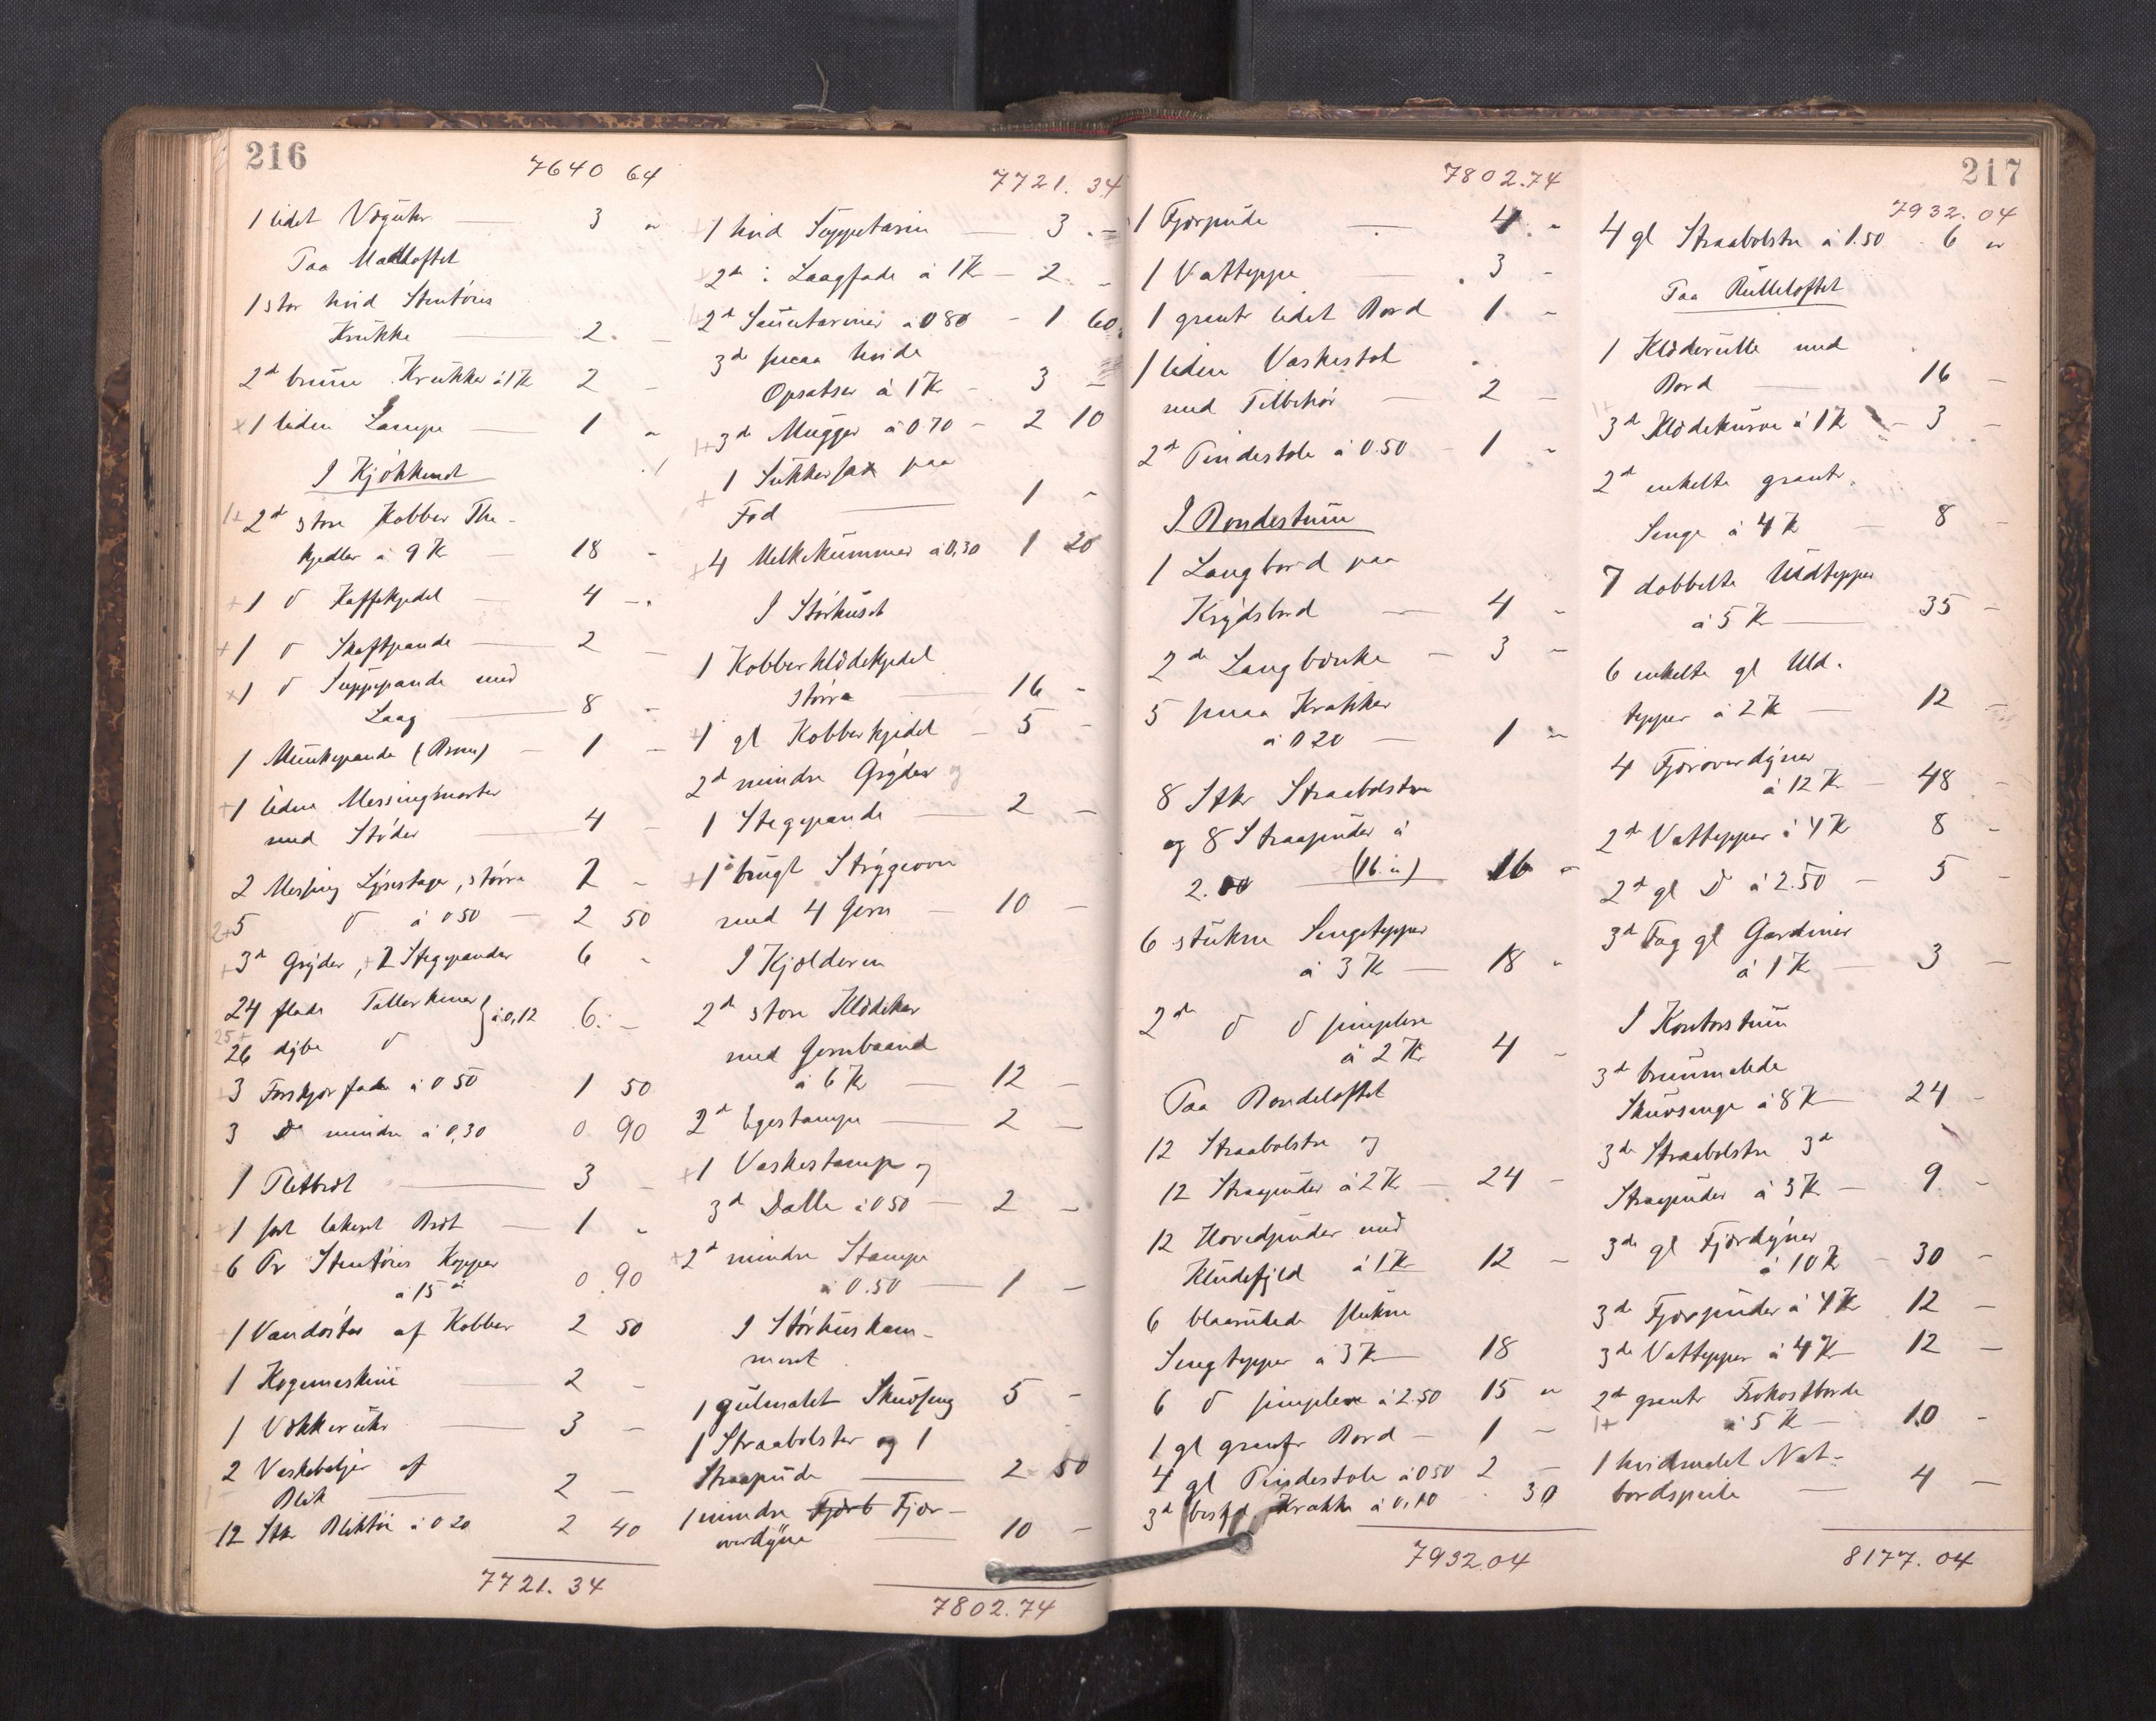 216
7640 64
1 lidet Væguhr 3 "
Paa Madloftet
1 stor hvid Stentöies
Krukke 2. –
2de brune Krukker à 1 Kr 2 –
×1 liden Lampe 1 "
I Kjökkenet
1+ 2de store Kobber The-
kjedler à 9 Kr – 18 –
+1 d Kaffekjedel – 4 –
+1 d Skaftpande 2 –
×1 d Suppepande med
Laag 8 –
1 Munkepande (Brun) – 1 –
+1 liden Messingmorter
med Stöder 4 –
2 Messing Lysestager, större 2 –
2+ 5 d à 0 50 – 2 50
+3de Gryder, +2 Stegepander 6 –
24 flade Tallerkener } à 0,12 6. –
25+
26 dybe d
3 Forskjærfade à 0 50 1 50
3 do mindre à 0,30 0 90
1 Pletbræt 3 –
+1 sort lakeret Bræt – 1 –
+6 Pr Stentöies Kopper
à 15 ö 0.90
+1 Vandöster af Kobber 2 50
1 Kogemaskine 2 –
1 Vækkeruhr 3 –
2 Vaskebaljer af
Blik 2 –
12 Stk Bliktöi à 0 20 2 40
7721. 34
7721. 34
+1 hvid Suppeterin 3. –
+2de : Laagfade à 1 Kr – 2. –
2de Sauceterriner à 0 80 – 1 60
3de smaa hvide
Opsatser à 1 Kr – 3 –
1+3de Mugger à 0.70 – 2 10
+ 1 Sukkerfat paa
Fod 1 –
+4 Melkekummer à 0,30 1 20
I Störhuset
1 Kobberklædekjedel
större 16 –
+1 gl Kobberkjedel – 5 –
2de mindre Gryder og
1 Stegepande 2 –
+1 brugt Strygeovn
med 4 Jern – 10 –
I Kjælderen
2de store Klædekar
med Jernbaand
à 6 Kr – 12 –
2de Egestampe 2 –
+1 Vaskestamp og
3de Dalle à 0 50 – 2 –
+2de mindre Stampe
à 0.50 1 –
I Störhuskam-
meret
1 gulmalet Skuvseng 5 –
1 Straabolster og 1
Straapude 2 50
1 mindre Fjær-
overdyne 10 –
7802.74
7802.74
1 Fjærpude 4. "
1 Vatteppe 3 –
1 graat lidet Bord 1. –
1 liden Vaskestol
med Tilbehör – 2 –
2de Pindestole à 0.50 – 1 "
I Bondestuen
1 Langbord paa
Krydsbord 4 "
2de Langbænke – 3 –
5 smaa Krakker
à 0 20 – 1 "
8 Stkr Straabolstre
og 8 Straapuder à
2.00 (16. à) 16 "
6 stukne Sengetepper
à 3 Kr – 18 "
2de d d simplere
à 2 Kr 4 –
Paa Bondeloftet
12 Straabolstre og
12 Straapuder à 2 Kr – 24 –
12 Hovedpuder med
Kludefyld à 1 Kr 12 –
6 blaarudede stukne
Sengtepper à 3 Kr 18
6 d simplere à 2.50 15 "
1 gl graat Bord – 1 –
4 gl Pindestole à 0 50 2 –
3de Krakke à 0,10 . 30
7932.04
217
7932. 04
4 gl Straabolstre à 1.50 6 "
Paa Rulleloftet
1 Klæderulle med
Bord 16 –
1+ 3de Klædekurve à 1 Kr – 3 –
2de enkelte graat.
Senge à 4 Kr – 8 –
7 dobbelte Uldtepper
à 5 Kr 35 –
6 enkelte gl Uld.
tepper à 2 Kr – 12 –
4 Fjæroverdyner
à 12 Kr – 48 –
2de Vattepper à 4 Kr 8 –
2de gl D à 2.50 – 5 –
3de Fag gl Gardiner
à 1 Kr – 3 –
I Kontorstuen
3de brunmalede
Skuvsenge à 8 Kr 24 –
3de Straabolstre 3de
Straapuder à 3 Kr – 9 –
3de gl Fjærdyner
à 10 Kr – 30 –
3de Fjærpuder à 4 Kr 12 –
3de Vattepper à 4 Kr 12 –
2de graat Frokostborde
1+ à 5 Kr – 10 –
1 hvidmalet Nat-
bordspeile 4 –
8177. 04